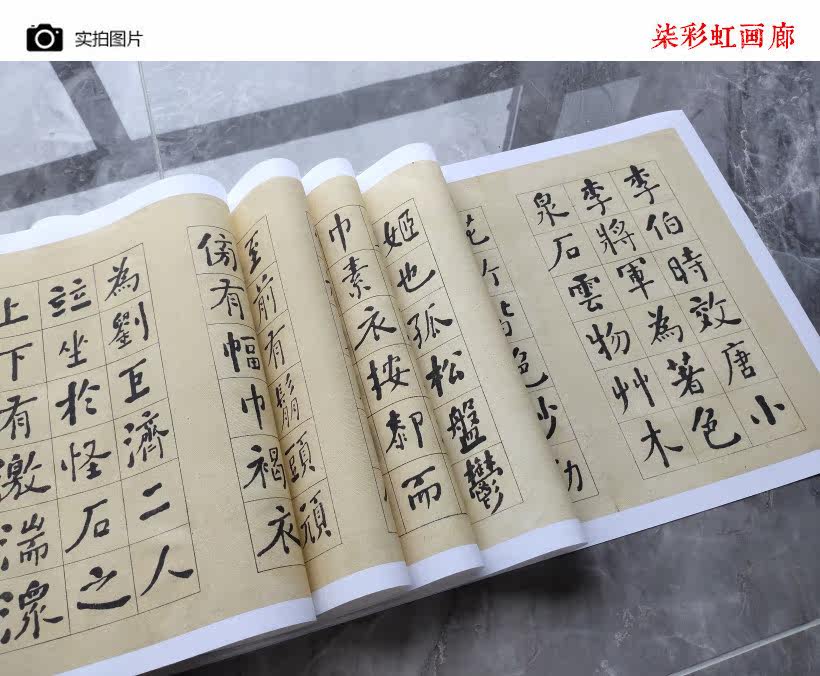 实拍图片
柒彩虹画廊
李伯時效唐小
李將軍為著色
泉石雲物艸木
姬也孤松盤鬱
巾素衣按厀而
至前有鬅頭頑
傍有幅巾褐衣
為劉巨濟二人
竝坐於怪石之
上下有激湍潨